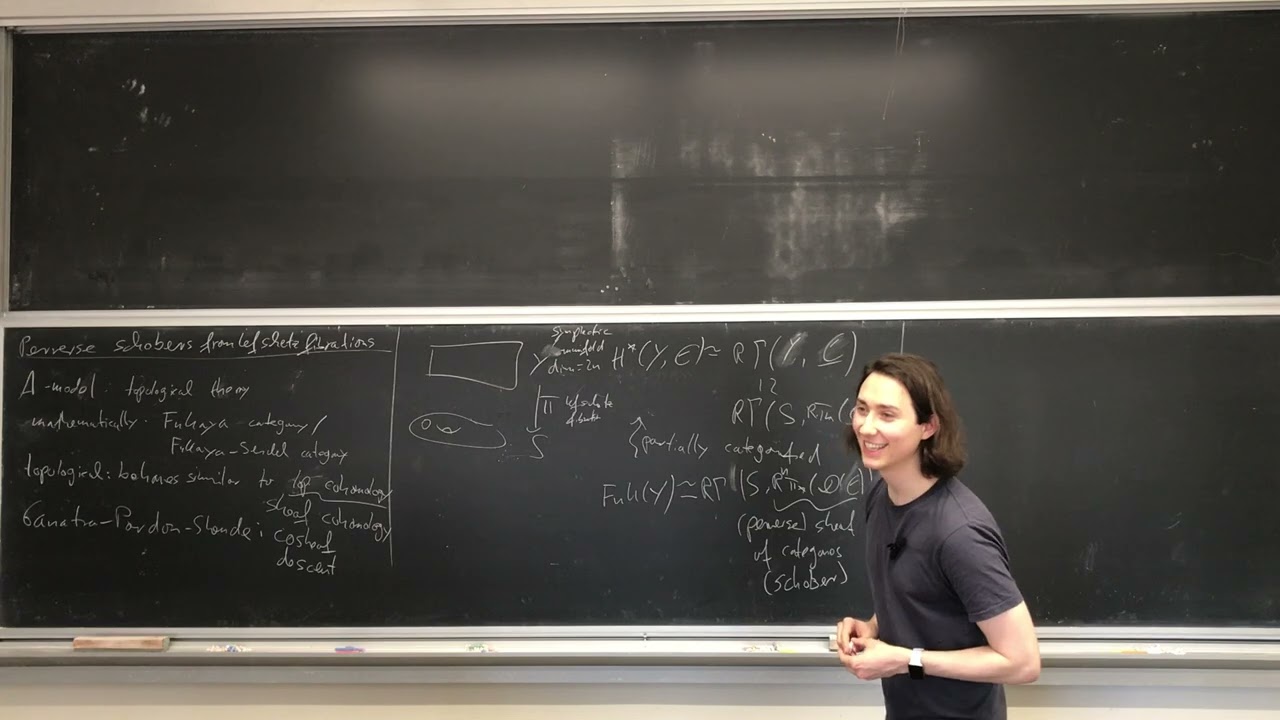 Perverse schobers from lefschetz fibrations
A-model: topological theory
mathematically: Fukaya category/
Fukaya-Seidel category
topological: behaves similar to top cohomology
sheaf cohomology
Ganatra-Pardon-Shende: cosheaf
descent
symplectic
manifold
Y dim=2n
π lefschetz
S
H*(Y, C) ≃ RΓ(Y, C)
RΓ(S, Rπ*(
partially categorified
Fuk(Y) ≃ "RΓ"(S, "Rπ*"(
(perverse) sheaf
of categories
(schober)